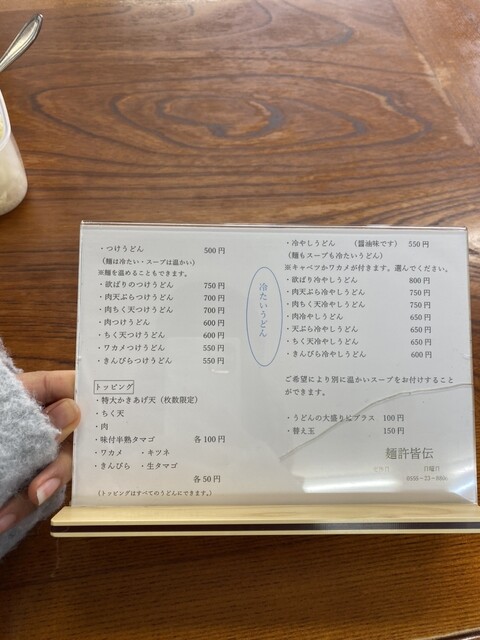 ・つけうどん 500円
（麺は冷たい・スープは温かい）
※麺を温めることもできます。
・欲ばりのつけうどん 750円
・肉天ぷらつけうどん 700円
・肉ちく天つけうどん 700円
・肉つけうどん 600円
・ちく天つけうどん 600円
・ワカメつけうどん 550円
・きんぴらつけうどん 550円
トッピング
・特大かきあげ天（枚数限定）
・ちく天
・肉
・味付半熟タマゴ 各100円
・ワカメ ・キツネ
・きんぴら ・生タマゴ
各50円
（トッピングはすべてのうどんにできます。）
冷たいうどん
・冷やしうどん （醤油味です） 550円
（麺もスープも冷たいうどん）
※キャベツかワカメが付きます。選んでください。
・欲ばり冷やしうどん 800円
・肉天ぷら冷やしうどん 750円
・肉ちく天冷やしうどん 750円
・肉冷やしうどん 650円
・天ぷら冷やしうどん 650円
・ちく天冷やしうどん 650円
・きんぴら冷やしうどん 600円
ご希望により別に温かいスープをお付けすること
ができます。
・うどんの大盛りにプラス 100円
・替え玉 150円
麺許皆伝
定休日 日曜日